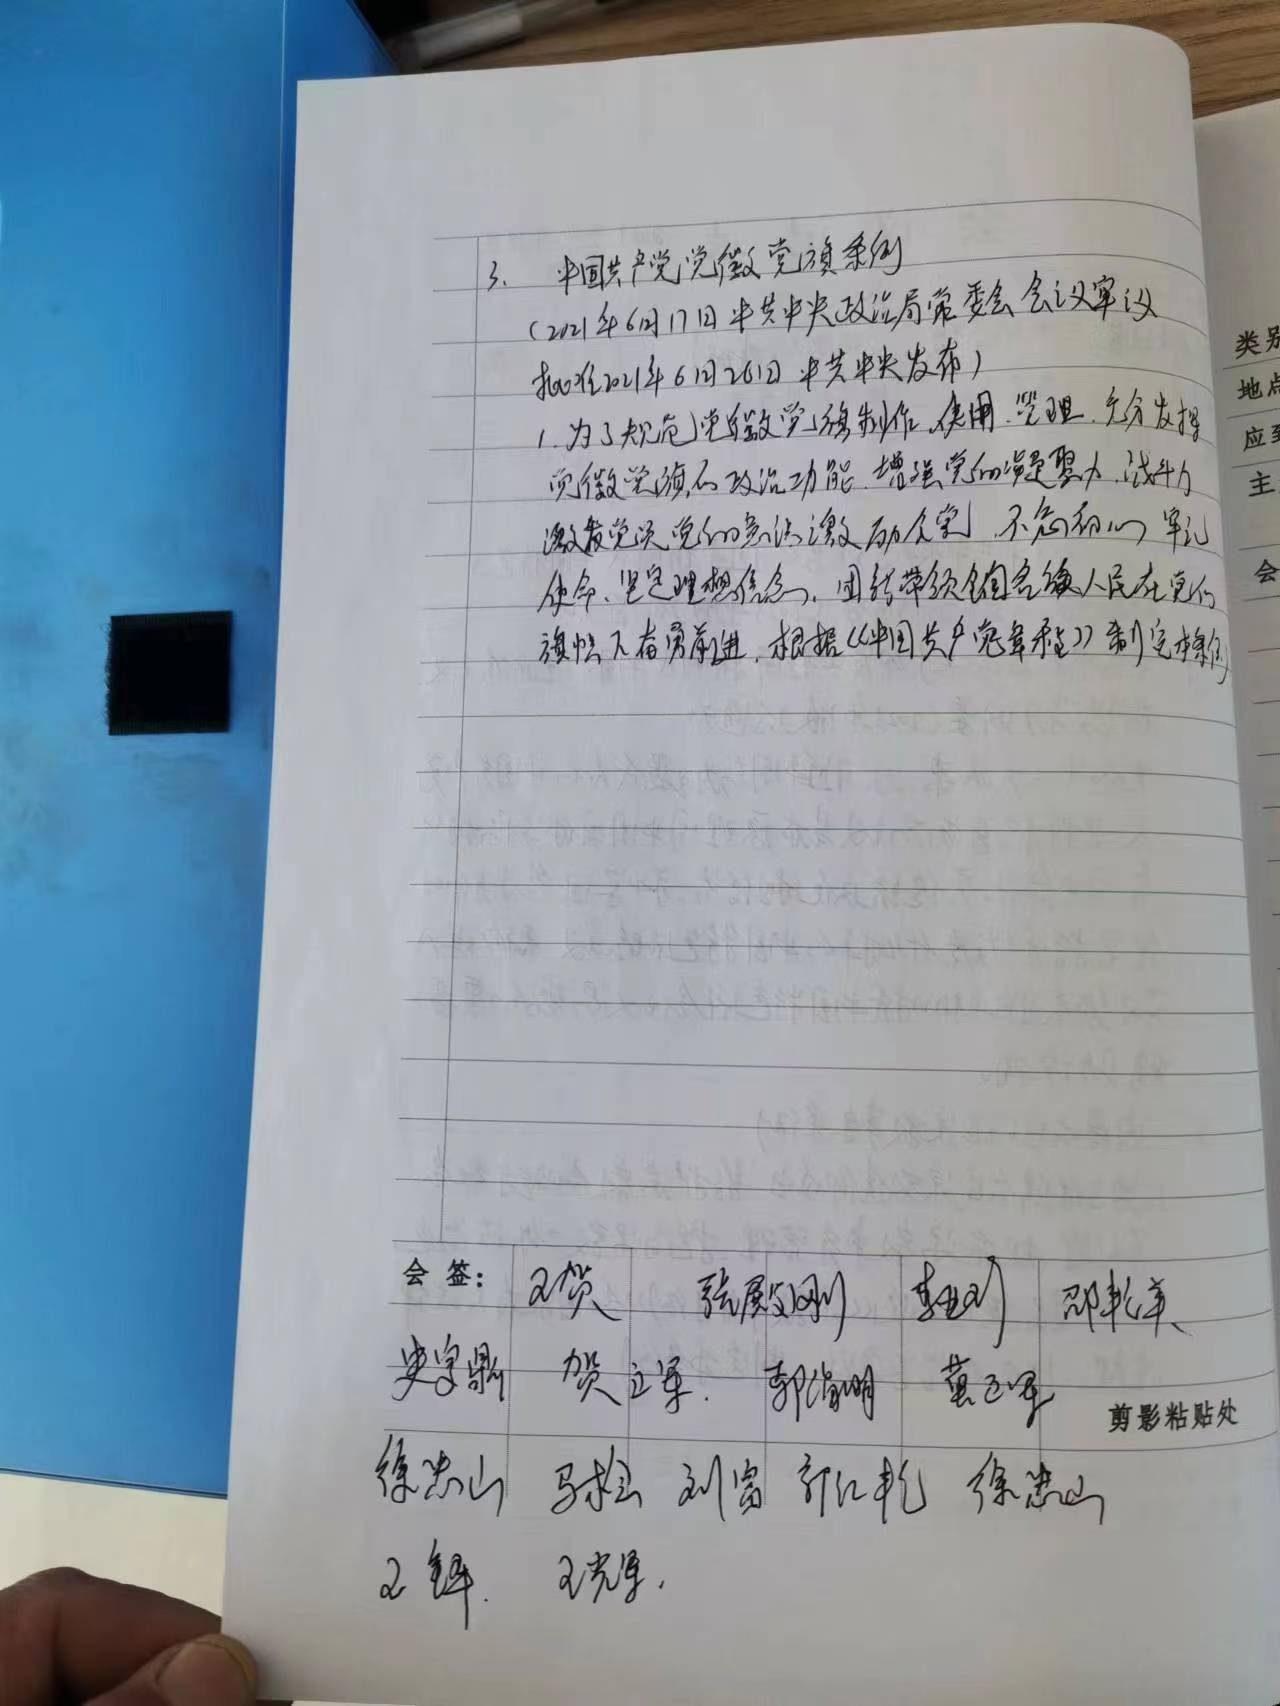 3. 中国共产党党徽党旗条例
(2021年6月17日中共中央政治局常委会会议审议
批准2021年6月26日中共中央发布)
1.为了规范党徽党旗制作、使用、管理、充分发挥
党徽党旗的政治功能、增强党的凝聚力、战斗力
激发党员党的意识激励全党、不忘初心牢记
使命、坚定理想信念、团结带领全国各族人民在党的
旗帜下奋勇前进、根据《中国共产党章程》制定本条例
会签: 王贺 张殿刚 邵乾
贺立军. 郭海明
剪影粘贴处
徐忠山 马 刘富 徐忠山
王 王光军.
类别
地点
应到
主
会